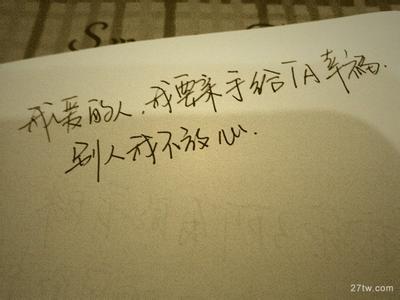 我爱的人,我要亲手给TA幸福.
别人我不放心.
27tw.com